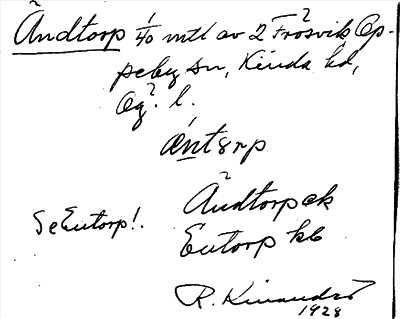 Ändtorp 1/10 mtl av 2 Frösvik Op-
peby sn, Kinda hd,
Ög. l.
æntorp
Ändtorp ek
Se Entorp!.
Entorp kb
R. Kinander
1928